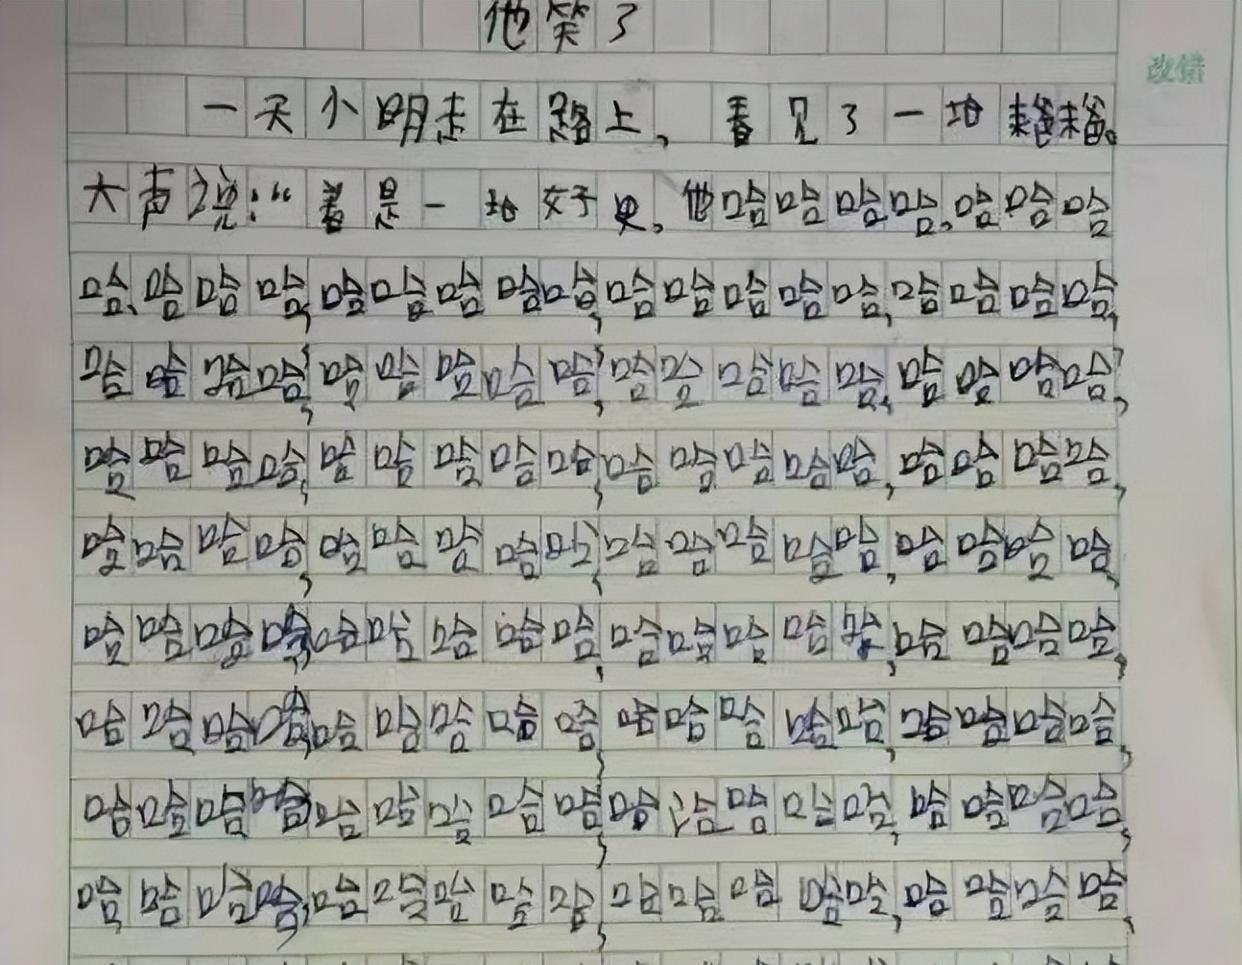 他笑了
改错
一天小明走在路上，看见了一地
大声说：“着是一地好更，他哈哈哈哈，哈哈哈
哈、哈哈哈，哈哈哈哈哈，哈哈哈哈哈，哈哈哈哈，
哈哈哈哈，哈哈哈哈哈，哈哈哈哈哈，哈哈哈哈，
哈哈哈哈，哈哈哈哈哈，哈哈哈哈哈，哈哈哈哈，
哈哈哈哈，哈哈哈哈哈，哈哈哈哈哈，哈哈哈哈，
哈哈哈哈，哈哈哈哈哈，哈哈哈哈哈，哈哈哈哈，
哈哈哈哈，哈哈哈哈哈，哈哈哈哈哈，哈哈哈哈，
哈哈哈哈，哈哈哈哈哈，哈哈哈哈哈，哈哈哈哈，
哈哈哈哈，哈哈哈哈哈，哈哈哈哈哈，哈哈哈哈，